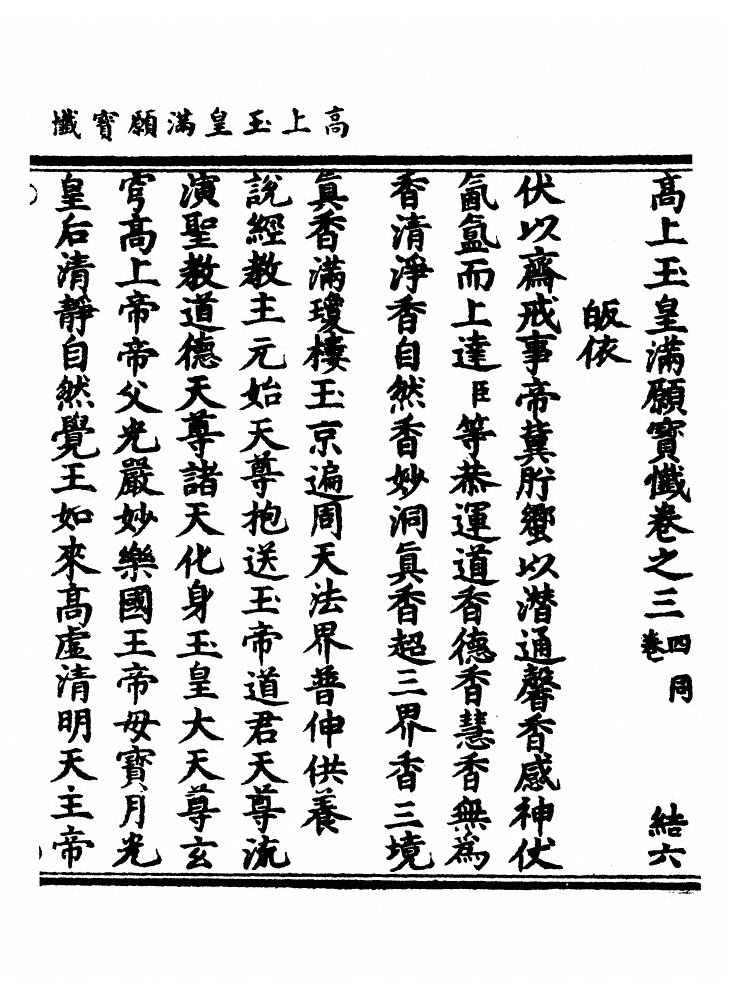 高上玉皇滿願寶懺
高上玉皇滿願寶懺卷之三 四同卷 結六
皈依
伏以齋戒事帝冀肸蠁以潛通馨香感神伏
氤氳而上達臣等恭運道香德香慧香無為
香清淨香自然香妙洞真香超三界香三境
真香滿瓊樓玉京遍周天法界普伸供養
說經教主元始天尊抱送玉帝道君天尊流
演聖教道德天尊諸天化身玉皇大天尊玄
穹高上帝帝父光嚴妙樂國王帝母寶月光
皇后清靜自然覺王如來高虛清明天主帝